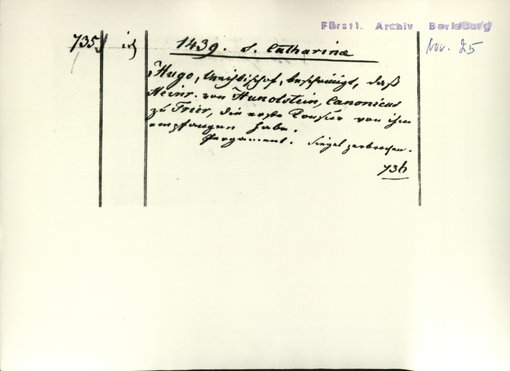 Fürstl. Archiv Berleburg
Nov. 25
735
1439. S. Catharina
Hugo, Weihbischof, bescheinigt, daß
Heinr. von Hunolstein, Canonicus
zu Trier, die erste Tonsur von ihm
empfangen habe.
Pergament. Siegel zerbrochen.
736